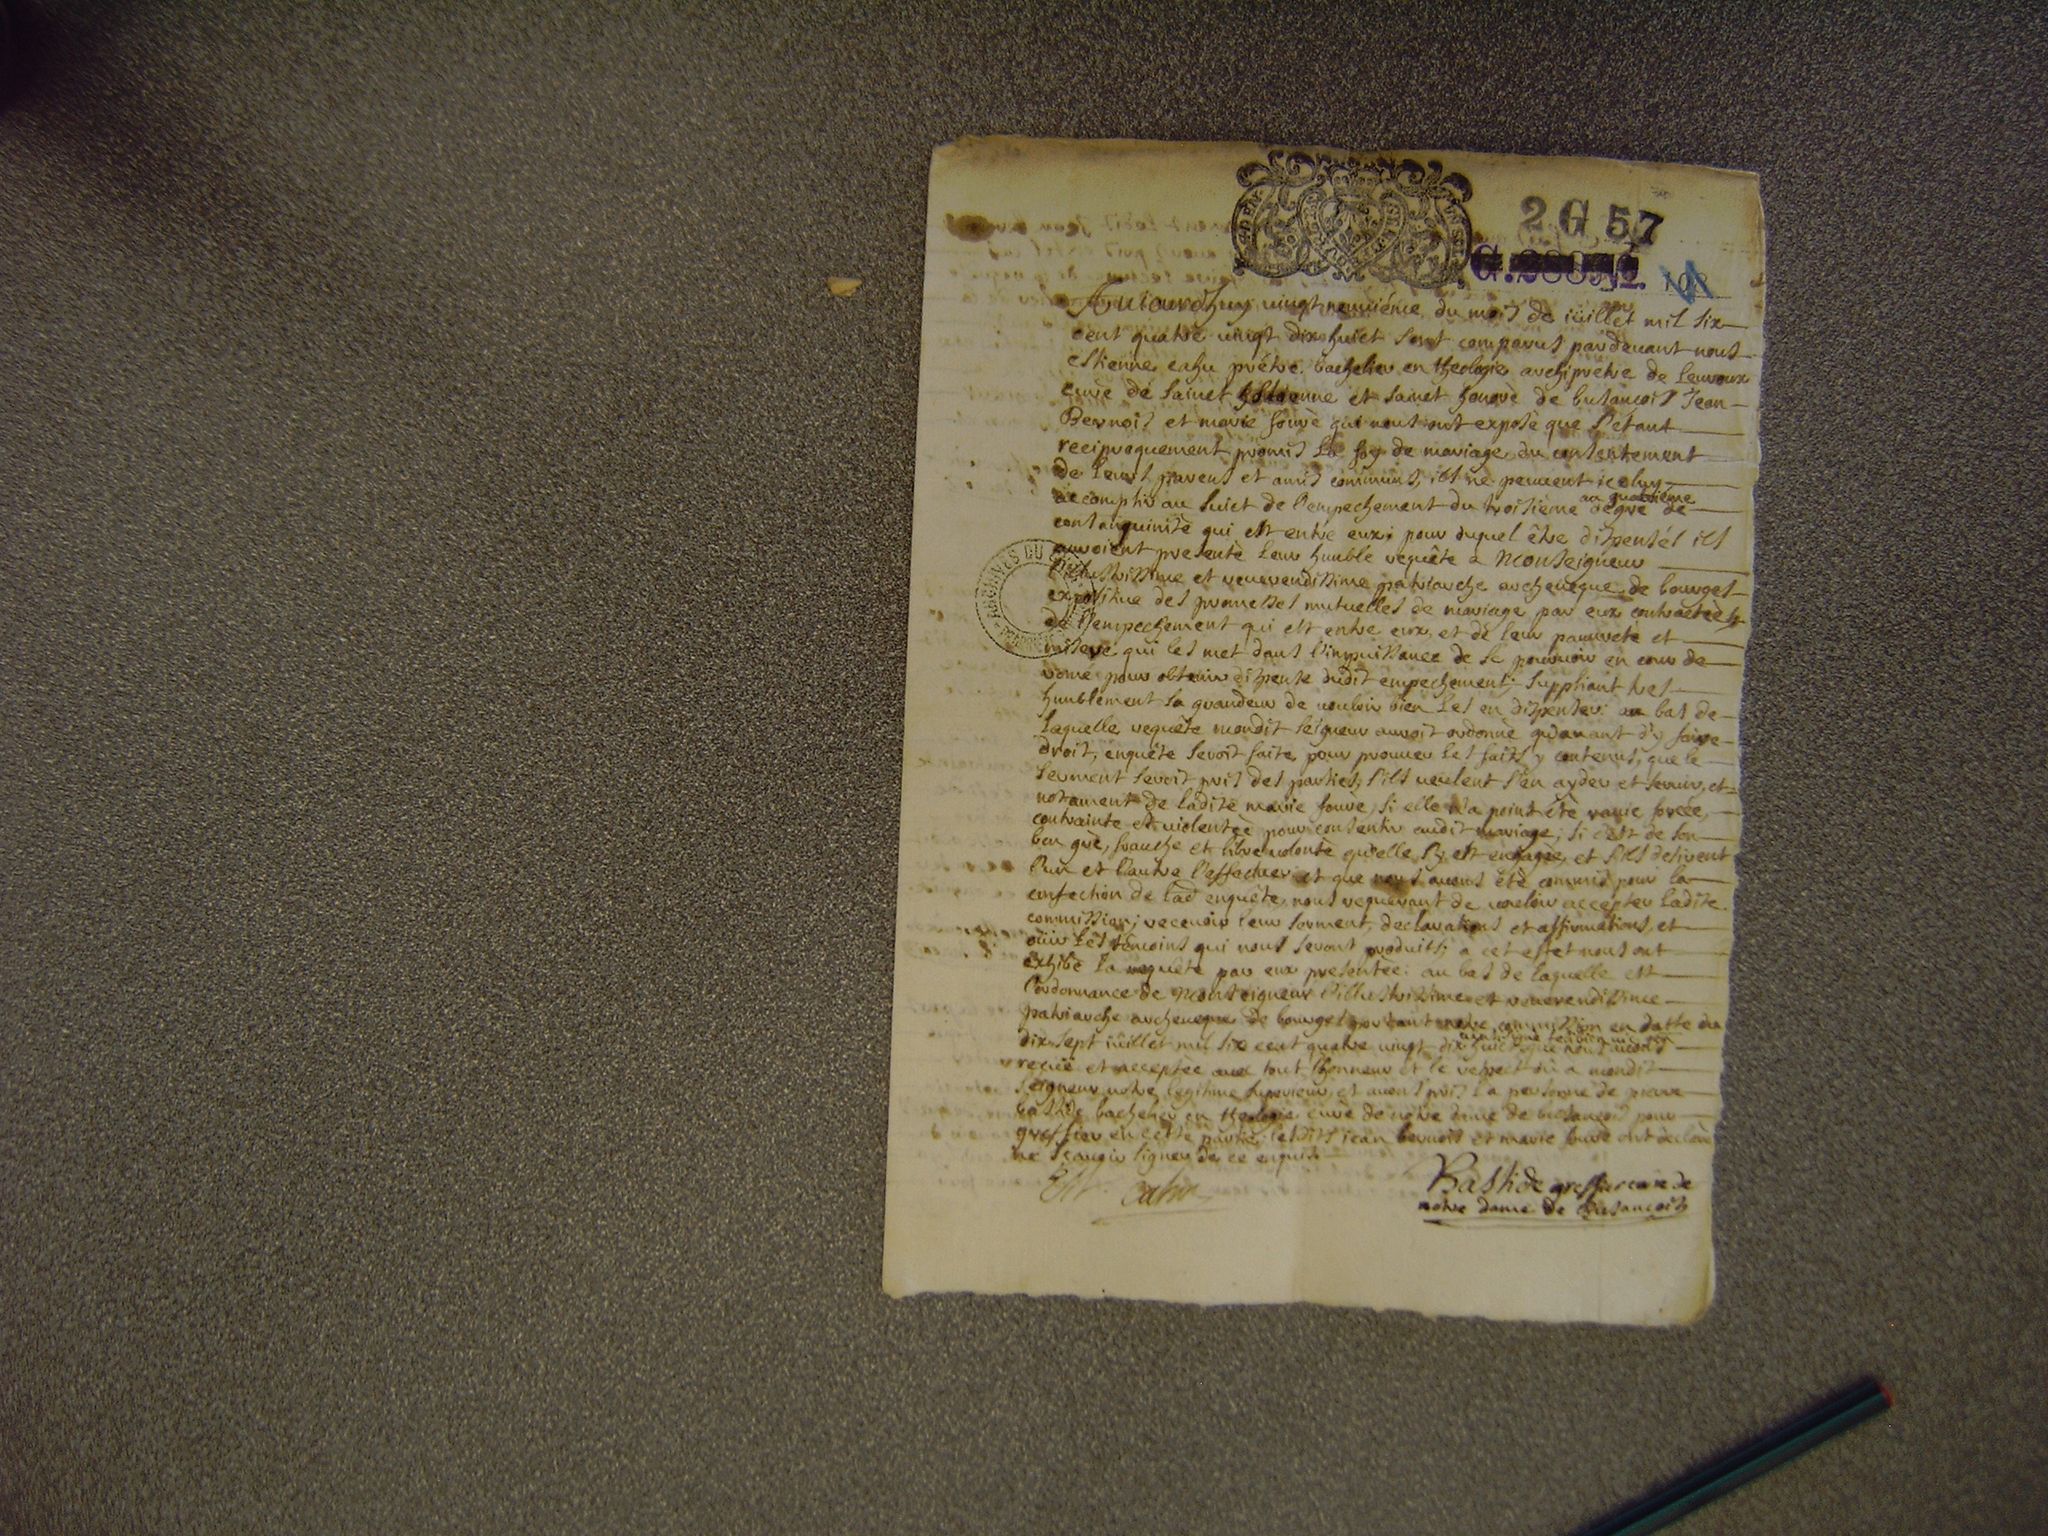 2 G 57
G. 288 
108
ARCHIVES DU CHER
Auiourdhuy vingt neuuiéme du mois de iüillet mil six
cent quatre uingt dix huict sont comparus pardeuant nous
estienne cahu prétre bachelier en theologie archiprétre de leuroux
curé de sainct estienne et sainct honoré de busançois Jean
Bernois et marie fouré qui nous ont exposé que s'étant
reciproquement promis la foy de mariage du consentement
de leurs parens et amis communs, ils ne peuuent iceluy
accomplir au suiet de l'empechement du troisiéme au quatriéme degré de
consanguinité qui est entre eux; pour duquel être dispensés ils
auroient presenté leur humble requête a Monseigneur
l'illustrissime et reuerendissime patriarche archeueque de bourges
expositiue des promesses mutuelles de mariage par eux contractées
de l'empechement qui est entre eux, et de leur pauureté et
misere qui les met dans l'impuissance de se pouruoir en cour de
rome pour obtenir dispense dudit empechement; suppliant tres
humblement sa grandeur de uouloir bien les en dispenser: au bas de
laquelle requête mondit seigneur auroit ordonné qu'auant d'y faire
droit, enquête seroit faite, pour prouuer les faits y contenus, que le
serment seroit pris des parties, s'ils ueulent s'en ayder et seruir, et
notament de ladite marie fouré, si elle n'a point été rauie, forcée,
contrainte et uiolentée pour consentir audit mariage; si c'est de son
bon gré, franche et libre uolonté qu'elle s'y est engagée, et s'ils desirent
l'un et l'autre l'effectuer et que nous auons été commis pour la
confection de lad enquête, nous requerant de uouloir accepter ladite
commission; receuoir leur serment, declarations et affirmations, et
oüir les témoins qui nous seront produits; a cet effet nous ont
exhibé la requête par eux presentée: au bas de laquelle est
l'ordonnance de Monseigneur l'illustrissime et reuerendissime
patriarche archeueque de bourges portant notre commission en datte du
dix sept iüillet mil six cent quatre uingt dix huict que nous auons
receüe et acceptée auec tout l'honneur et le respect dû a mondit
seigneur notre legitime superieur, et auons pris la personne de pierre
bastide bachelier en theologie curé de notre dame de busançois pour
greffier en cette partie; lesdits jean bernois et marie fouré ont declaré
ne sçauoir signer de ce enquis
Est. Cahu
Bastide greffier curé de
notre dame de Busançois